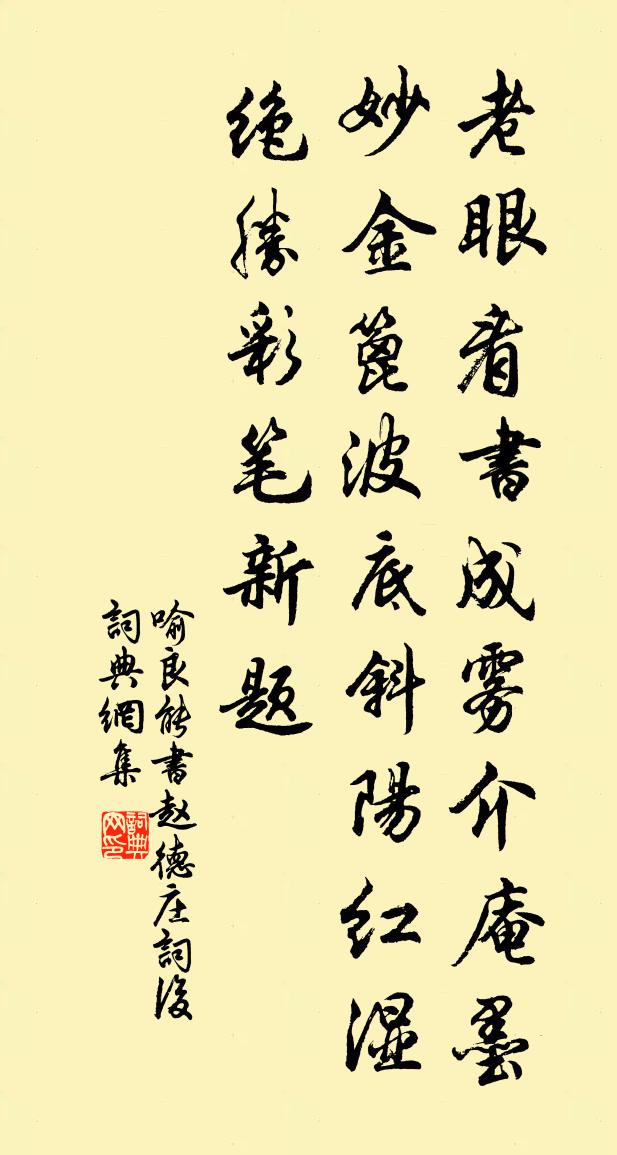 老眼看書成雾介庵墨
妙金篦波底斜陽红湿
绝勝彩笔新题
喻良能書赵德庄詞後
詞典網集
詞典网印